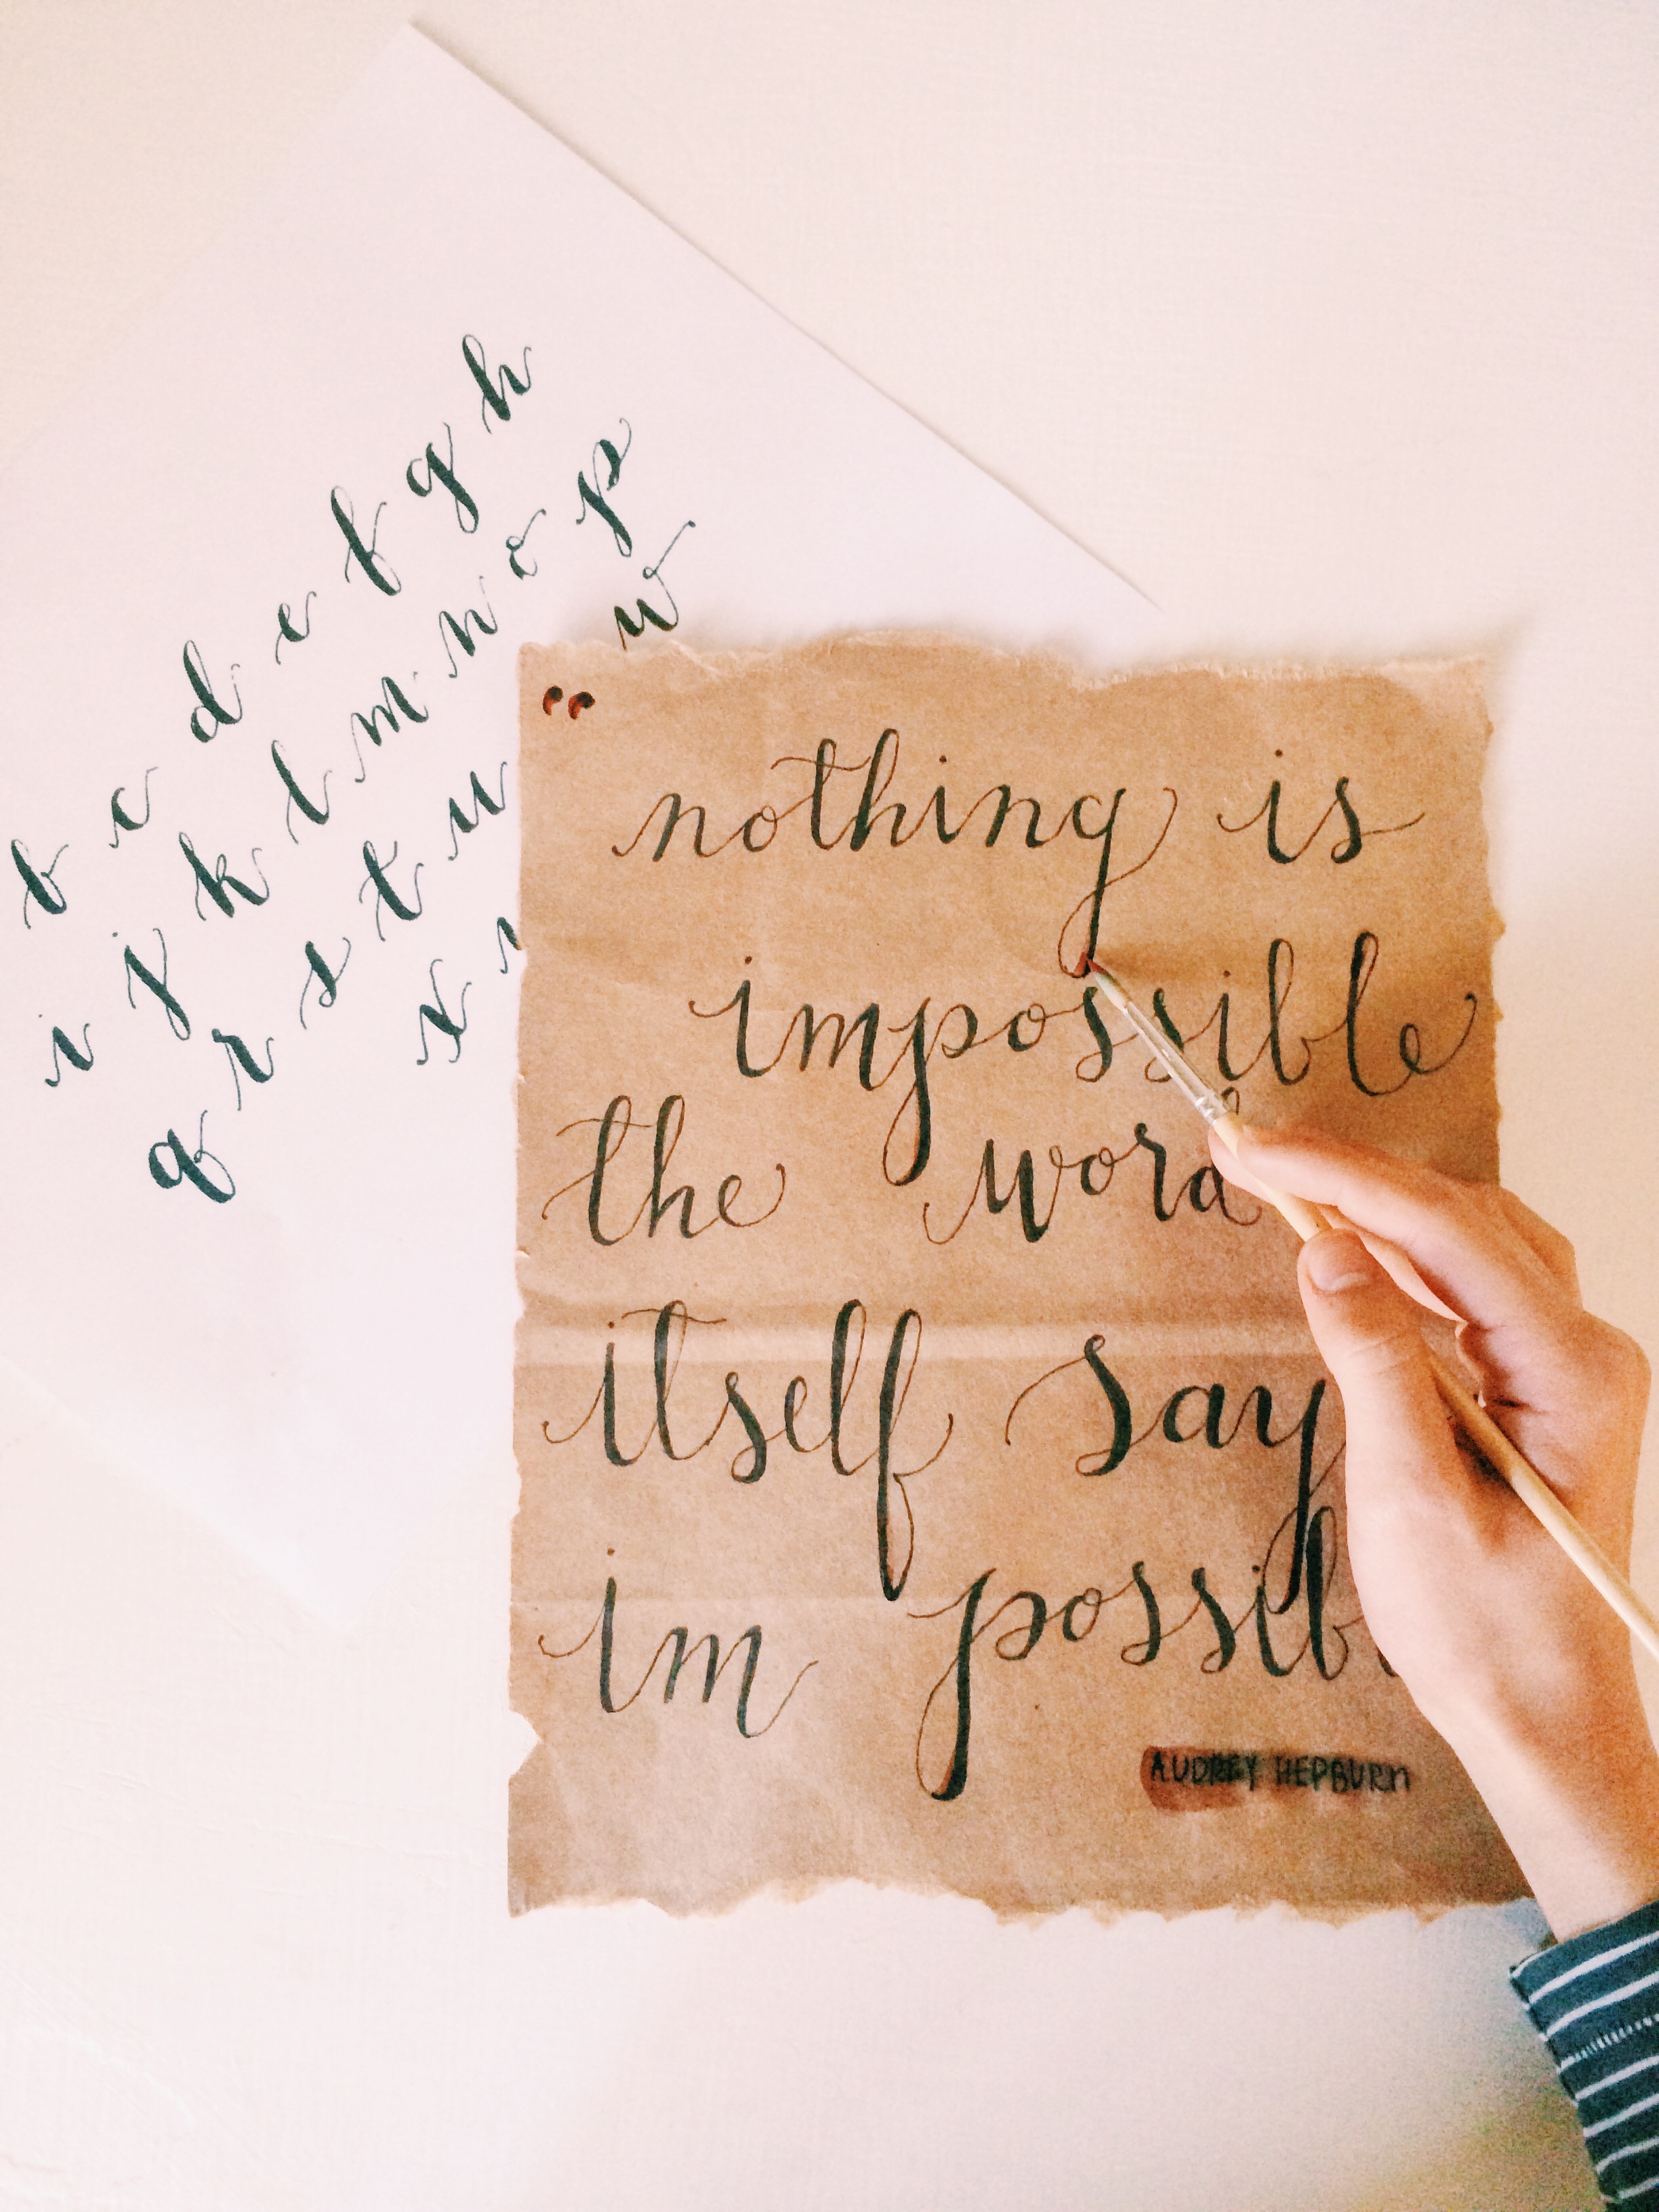 b c d e f g h
i j k l m n o p
q r s t u w
x
“
nothing is
impossible
the word
itself say
im possib
AUDREY HEPBURN